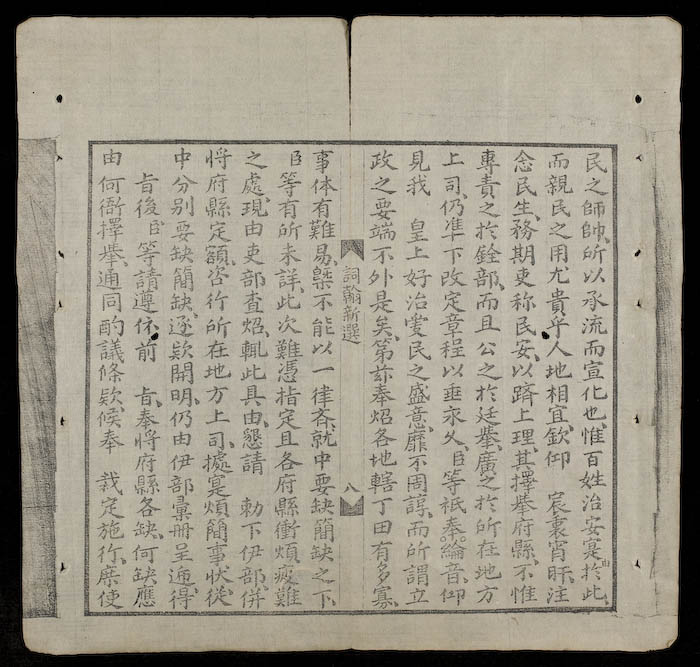 民之師帥、所以承流而宣化也、惟百姓治安寔由於此、
而親民之用尤貴乎人地相宜、欽仰　宸裏宵旰、注
念民生、務期吏称民安、以躋上理、其擇举府縣、不惟
專責之於銓部、而且公之於廷举、廣之於所在地方
上司、仍準下改定章程以垂永久、臣等祗奉綸音、仰
見我　皇上好治愛民之盛意、靡不周諄、而所謂立
政之要端不外是矣、第茲奉炤各地轄丁田有多寡、
詞翰新選
八
事体有難易、槩不能以一律斉、就中要缺簡缺之下、
臣等有所未詳、此次難憑指定且各府縣衝煩疲難
之處、現由吏部查炤、輒此具由、懇請　勅下伊部併
將府縣定額、咨行所在地方上司、據寔煩簡事状、從
中分別要缺簡缺、逐欵開明、仍由伊部彙册呈逓得
旨後、臣等請遵依前　旨、奉將府縣各缺、何缺應
由何衙擇举、通同酌議條欵、候奉　裁定施行、庶使